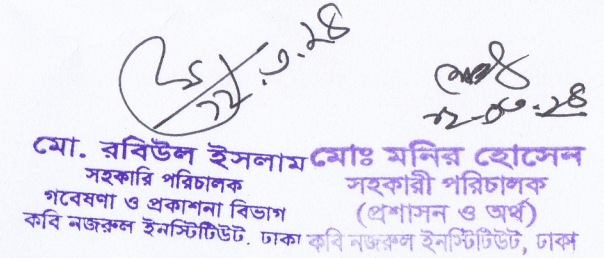 মো. রবিউল ইসলাম
সহকারি পরিচালক
গবেষণা ও প্রকাশনা বিভাগ
কবি নজরুল ইনস্টিটিউট. ঢাকা
মোঃ মনির হোসেন
সহকারী পরিচালক
(প্রশাসন ও অর্থ)
কবি নজরুল ইনস্টিটিউট, ঢাকা